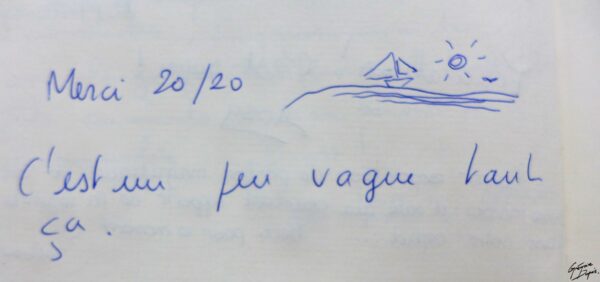 Merci 20/20
C'est un peu vague tout
ça.